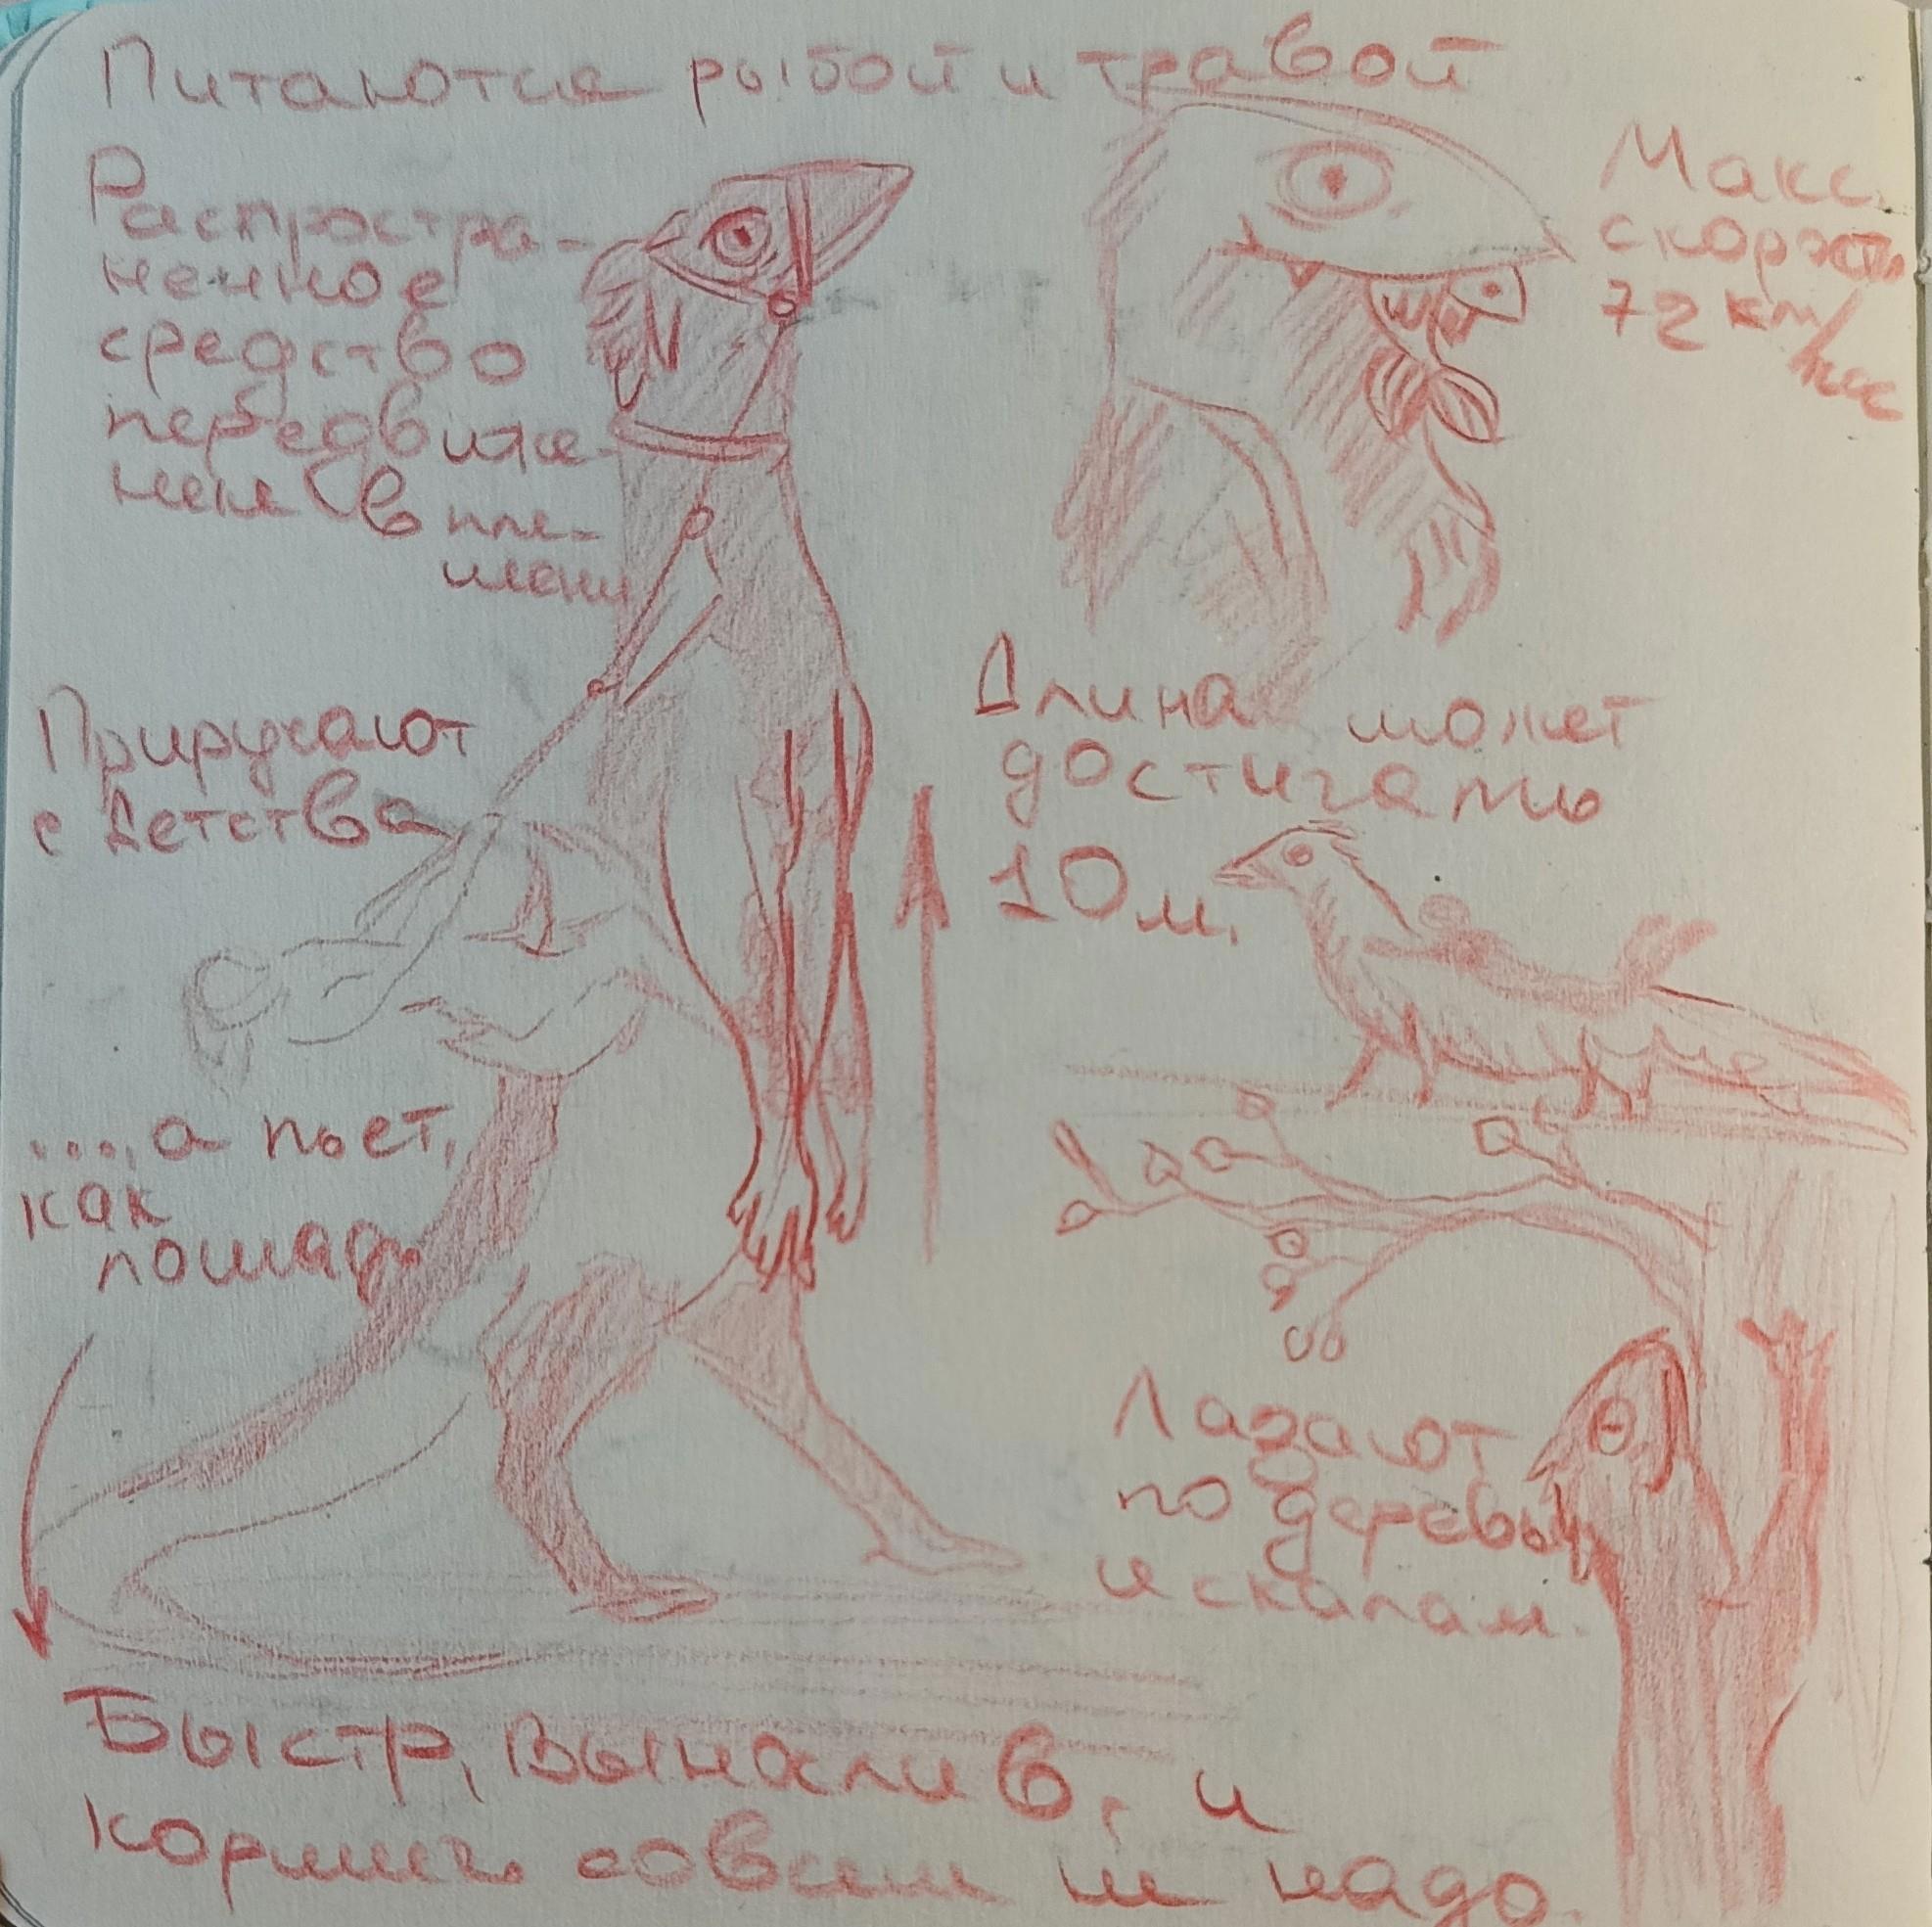 Питаются рыбой и травой
Распростра-
ненное
средство
передвиже-
ния в пле-
мени
Макс.
скорость
72 км/час
Приручают
с детства
Длина может
достигать
10 м.
..., а поёт,
как
лошадь
Лазают
по деревьям
и скалам.
Быстр, вынослив, и
кормить совсем не надо.